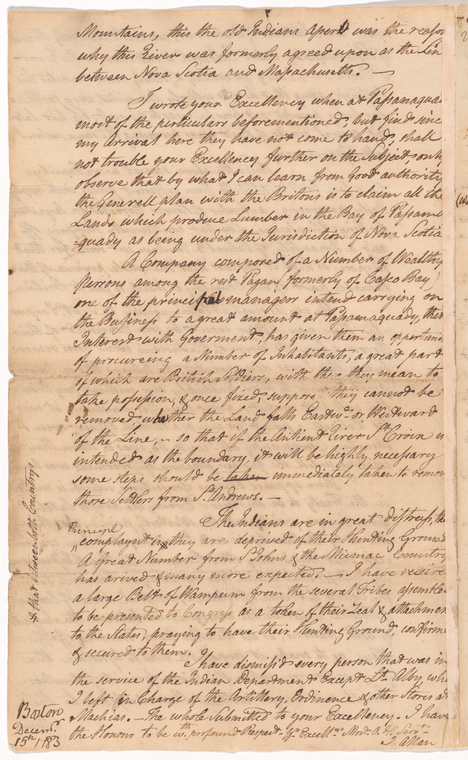 Mountains, this the old Indians Apert was the reason
why this River was formerly agreed upon as the Line
between Nova Scotia and Massachusetts. —
I wrote your Excellency when at Passamaqua
most of the particulars beforementioned, but find since
my Arrival here they have not come to hand, shall
not trouble your Excellency further on the Subject only
observe that by what I can learn from good authority
the Generell plan with the Britons is to claim all the
Lands which produce Lumber in the Bay of Passama
-quady as being under the Jurisdiction of Nova Scotia
A Company composed of a Number of Wealthy
Persons among the rest Pagan formerly of Casco Bay
one of the principal managers intend carrying on
the Bussiness to a great amount at Passamaquady, their
Interest with Goverment, has given them an opportun
of procureing a Number of Inhabitants, a great part
of which are British Soldiers, with this they mean to
take possession, & once fixed suppose they cannot be
removed whether the Land falls Eastwd. or Westward
of the Line, — so that if the Antient River St Croix is
intended as the boundary, it will be highly necessary
some steps should be taken immediately taken to remov
those Settlers from St Andrews. —
The Indians are in great distress, the
Principl.
complaynt is they are deprived of their Hunting Ground
A Great Number from St Johns & the Micmac Country
has arived & many more expected. — I have receiv
a large Belt of Wampum from the several Tribes assembled
to be presented to Congress as a token of their Zeal & attachment
to the States; praying to have their Hunting Ground, confirme
& secured to them.
I have dismissd every person that was in
the service of the Indian Department Except Lt. Alby, who
I left in Charge of the Artillery, Ordinence & other Stores at
Machias. — The whole Submitted to your Excellency. I have
the Honour to be wt. profound Respect. Yr Excelly Most. O. H. Sert.
J. Allan
& that between both Countrys
Boston
Decemr.
15th 1783